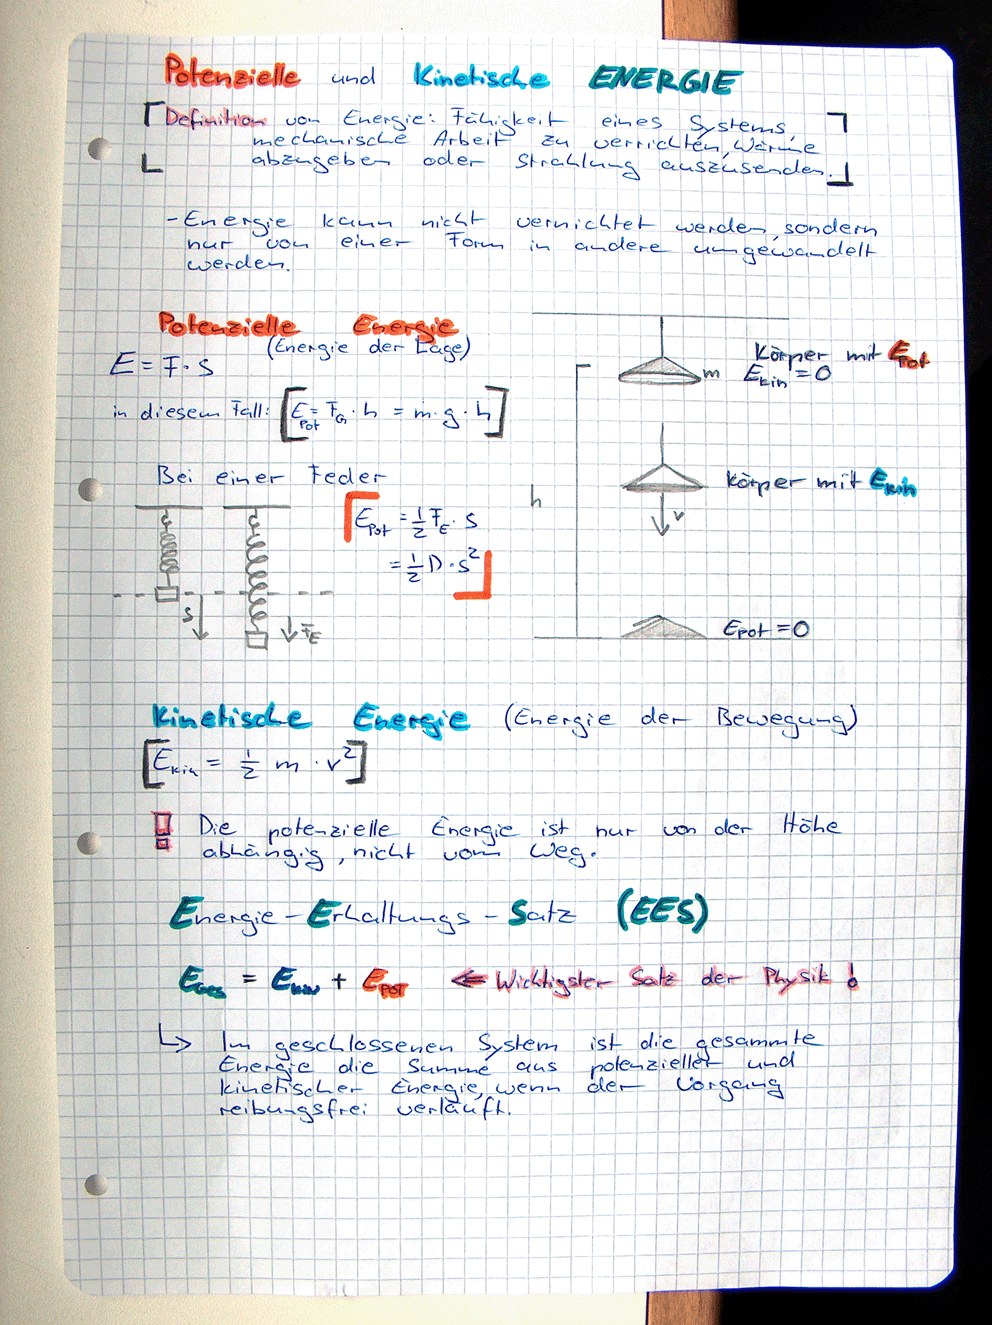 Potenzielle und Kinetische ENERGIE
Definition von Energie: Fähigkeit eines Systems,
mechanische Arbeit zu verrichten, Wärme
abzugeben oder Strahlung auszusenden.
- Energie kann nicht vernichtet werden, sondern
nur von einer Form in andere umgewandelt
werden.
Potenzielle Energie
(Energie der Lage)
E = F · s
in diesem Fall: [E_Pot = F_G · h = m · g · h]
Bei einer Feder
E_Pot = 1/2 F_E · s
= 1/2 D · s²
s
F_E
Körper mit E_Pot
m E_kin = 0
h
Körper mit E_kin
v
E_Pot = 0
Kinetische Energie (Energie der Bewegung)
[E_kin = 1/2 m · v²]
! Die potenzielle Energie ist nur von der Höhe
abhängig, nicht vom Weg.
Energie - Erhaltungs - Satz (EES)
E_Ges = E_kin + E_POT ⇐ Wichtigster Satz der Physik!
↳ Im geschlossenen System ist die gesammte
Energie die Summe aus potenzieller und
kinetischer Energie, wenn der Vorgang
reibungsfrei verläuft.